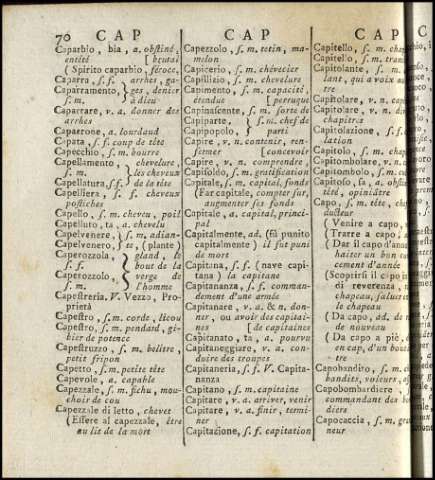 70 CAP
CAP
CAP
Caparbio, bia, a. obstiné,
entêté [ brutal
( Spirito caparbio, féroce,
Caparra, s. f. arrhes, ga-
Caparramento, ges, denier
s. m. à dieu
Caparrare, v. a. donner des
arrhes
Caparrone, a. lourdaud
Capata, s. f. coup de tête
Capecchio, s. m. bourre
Capellamento, chevelure,
s. m. les cheveux
Capellatura, s. f. de la tête
Capelliera, s. f. cheveux
postiches
Capello, s. m. cheveu, poil
Capelluto, ta, a. chevelu
Capelvenere, s. m. adian-
Capelvenero, te, (plante)
Caperozzola, gland, le
s. f. bout de la
Caperozzolo, verge de
s. m. l'homme
Capestreria, V. Vezzo, Pro-
prierà
Capestro, s. m. corde, licou
Capestro, s. m. pendard, gi-
bier de potence
Capestruzzo, s. m. belitre,
petit fripon
Capetto, s. m. petite tête
Capevole, a. capable
Capezzale, s. m. fichu, mou-
choir de cou
Capezzale di letto, chevet
( Essere al capezzale, être
au lit de la mort
Capezzolo, s. m. tetin, ma-
melon
Capicerio, s. m. chévecier
Capillizio, s. m. chevelure
Capimento, s. m. capacité,
étendue [ perruque
Capinascente, s. m. sorte de
Capiparte, s. m. chef de
Capipopolo, parti
Capire, v. n. contenir, ren-
fermer [ concevoir
Capire, v. n. comprendre,
Capisoldo, s. m. gratification
Capitale, s. m. capital, fonds
( Far capitale, compter sur,
augmenter ses fonds
Capitale, a. capital, princi-
pal
Capitalmente, ad. (fù punito
capitalmente) il fut puni
de mort
Capitana, s. f. (nave capi-
tana) la capitane
Capitananza, s. f. comman-
dement d'une armée
Capitanare, v. a. & n. don-
ner, ou avoir des capitai-
nes [ de capitaines
Capitanato, ta, a. pourvu
Capitaneggiare, v. a. con-
duire des troupes
Capitaneria, s. f. V. Capita-
nanza
Capitano, s. m. capitaine
Capitare, v. a. arriver, venir
Capitare, v. a. finir, termi-
ner
Capitazione, s. f. capitation
Capitello, s. m. chap
Capitello, s. m.
Capitolante, s. m.
lant, qui a voix au
tre
Capitolare, v. n. cap
Capitolare, v. n.
chapitre
Capitolazione, s. f.
lation
Capitolo, s. m. chap
Capitombolare, v. n.
Capitombolo, s. m. cu
Capitoso, sa, a. obsti
tété, opiniâtre
Capo, s. m. tête, chef
ducteur
( Venire a capo,
( Trarre a capo,
( Dar il capo d'anno
haiter un bon
cement d'année
(Scoprirsi il capo in
di reverenza,
chapeau, saluer
le chapeau
( Da capo, ad. de
de nouveau
( Da capo a piè,
en cap, d'un bout
tre
Capobandito, s. m.
bandits, voleurs,
Capobombardiere,
commandant des bom
diers
Capocaccia, s. m. gra
neur